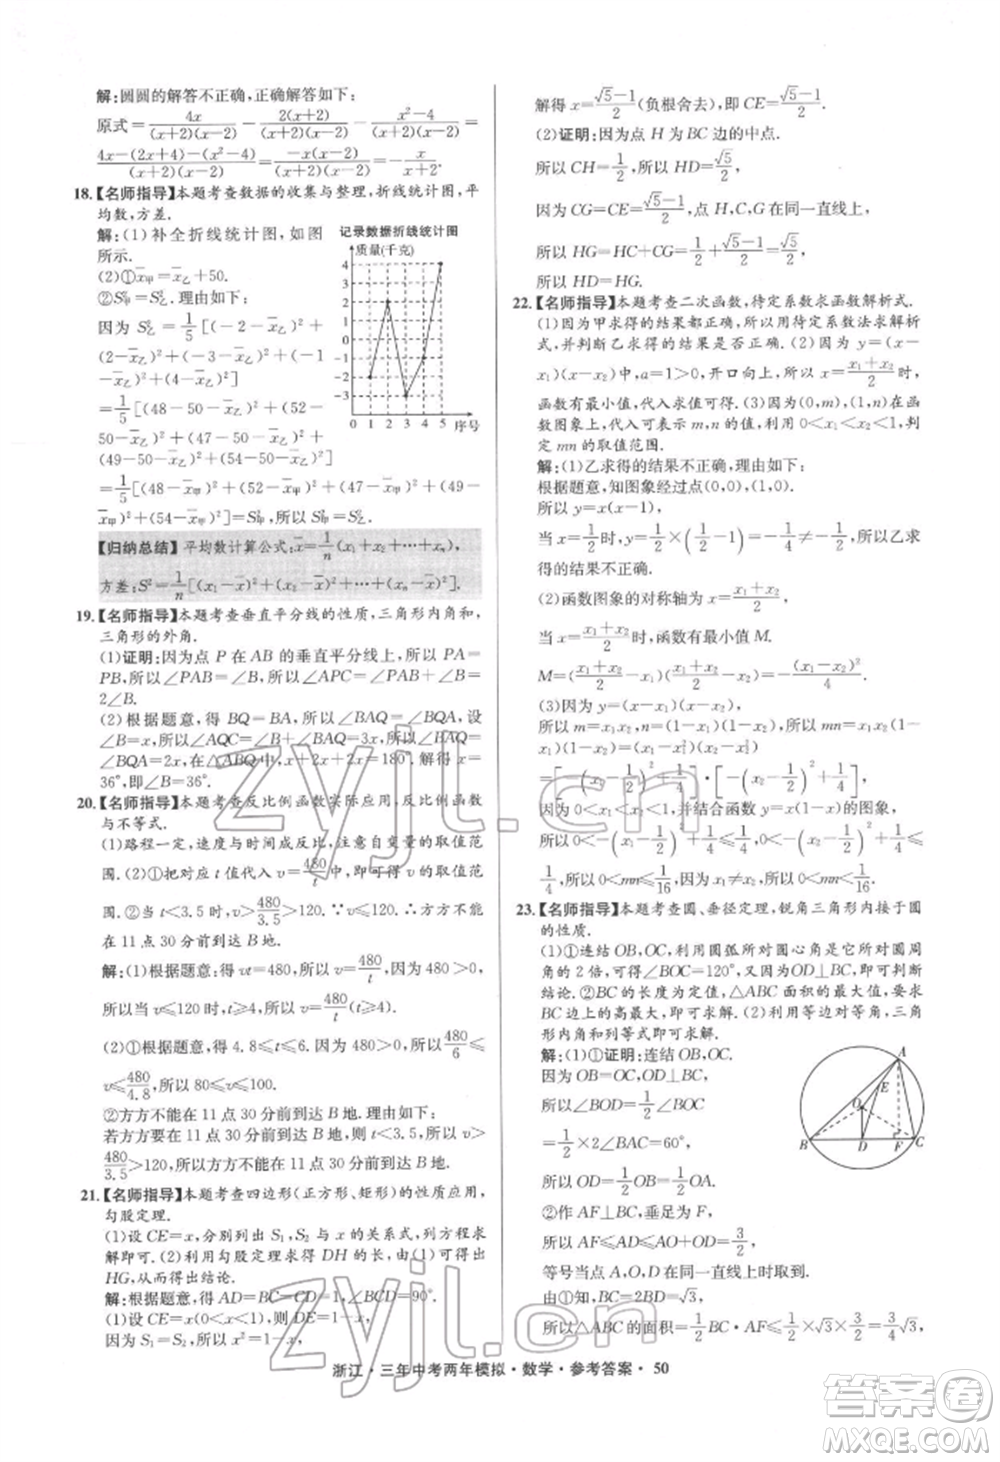 解:圆圆的解答不正确,正确解答如下:
原式=4x/((x+2)(x-2))-2(x+2)/((x+2)(x-2))-(x²-4)/((x+2)(x-2))=
(4x-(2x+4)-(x²-4))/((x+2)(x-2))=(2x-x²)/((x+2)(x-2))=-x/(x+2).
18.【名师指导】本题考查数据的收集与整理,折线统计图,平
均数,方差.
解:(1)补全折线统计图,如图
所示.
记录数据折线统计图
质量(千克)
4
3
2
1
0
-1
-2
-3
0 1 2 3 4 5 序号
(2)①x̄甲=x̄乙+50.
②S²甲=S²乙.理由如下:
因为 S²乙=1/5[(-2-x̄乙)²+
(2-x̄乙)²+(-3-x̄乙)²+(-1
-x̄乙)²+(4-x̄乙)²]
=1/5[(48-50-x̄乙)²+(52-
50-x̄乙)²+(47-50-x̄乙)²+
(49-50-x̄乙)²+(54-50-x̄乙)²]
=1/5[(48-x̄甲)²+(52-x̄甲)²+(47-x̄甲)²+(49-
x̄甲)²+(54-x̄甲)²]=S²甲,所以 S²甲=S²乙.
【归纳总结】平均数计算公式:x̄=1/n(x₁+x₂+…+xₙ),
方差:S²=1/n[(x₁-x̄)²+(x₂-x̄)²+…+(xₙ-x̄)²].
19.【名师指导】本题考查垂直平分线的性质,三角形内角和,
三角形的外角.
(1)证明:因为点 P 在 AB 的垂直平分线上,所以 PA=
PB,所以∠PAB=∠B,所以∠APC=∠PAB+∠B=
2∠B.
(2)根据题意,得 BQ=BA,所以∠BAQ=∠BQA,设
∠B=x,所以∠AQC=∠B+∠BAQ=3x,所以∠BAQ=
∠BQA=2x,在△ABQ 中,x+2x+2x=180°.解得 x=
36°,即∠B=36°.
20.【名师指导】本题考查反比例函数实际应用,反比例函数
与不等式.
(1)路程一定,速度与时间成反比例,注意自变量的取值范
围.(2)①把对应 t 值代入 v=480/t,所以求得 v 的取值范
围.②当 t<3.5 时,v>480/3.5>120,v≤120.∴方方不能
在 11 点 30 分前到达 B 地.
解:(1)根据题意:得 vt=480,所以 v=480/t,因为 480>
0,所以当 v≤120 时,t≥4,所以 v=480/t(t≥4).
(2)①根据题意,得 4.8≤t≤6.因为 480>0,所以480/6
≤v≤480/4.8,所以 80≤v≤100.
②方方不能在 11 点 30 分前到达 B 地.理由如下:
若方方要在 11 点 30 分前到达 B 地,则 t<3.5,所以 v>
480/3.5>120,所以方方不能在 11 点 30 分前到达 B 地.
21.【名师指导】本题考查四边形(正方形、矩形)的性质应用,
勾股定理.
(1)设 CE=x,分别列出 S₁、S₂ 与 x 的关系式,列方程求
解即可.(2)利用勾股定理求得 DH 的长,再求出 CH、
HG,从而得出结论.
解:根据题意,得 AD=BC=CD=1,∠BCD=90°.
(1)设 CE=x(0<x<1),则 DE=1-x,
因为 S₁=S₂,所以 x²=1-x,
解得 x=(√5-1)/2(负根舍去),即 CE=(√5-1)/2.
(2)证明:因为点 H 为 BC 边的中点.
所以 CH=1/2,所以 HD=√5/2,
因为 CG=CE=(√5-1)/2,点 H,C,G 在同一直线上,
所以 HG=HC+CG=1/2+(√5-1)/2=√5/2,
所以 HD=HG.
22.【名师指导】本题考查二次函数,待定系数求函数解析式.
(1)因为甲求得的结果都正确,所以用待定系数法求解析
式,并判断乙求得的结果是否正确.(2)因为 y=(x-
x₁)(x-x₂)中,a=1>0,开口向上,所以当 x=(x₁+x₂)/2时,
函数有最小值,代入求解即可.(3)因为(0,m),(1,n)在
函数图象上,代入可表示 m,n 的值,利用 0<x₁<x₂<1,求
定 mn 的取值范围.
解:(1)乙求得的结果不正确,理由如下:
根据题意,知图象经过点(0,0),(1,0),
所以 y=x(x-1),
当 x=1/2时,y=1/2×(1/2-1)=-1/4≠-1/2,所以乙求
得的结果不正确.
(2)函数图象的对称轴为 x=(x₁+x₂)/2.
当 x=(x₁+x₂)/2时,函数有最小值 M.
M=((x₁+x₂)/2-x₁)((x₁+x₂)/2-x₂)=-(x₁-x₂)²/4.
(3)因为 y=(x-x₁)(x-x₂),
所以 m=x₁x₂,n=(1-x₁)(1-x₂),所以 mn=x₁x₂(1-
x₁)(1-x₂)=(x₁-x₁²)(x₂-x₂²)
=[-(x₁-1/2)²+1/4]·[-(x₂-1/2)²+1/4],
因为 0<x₁<x₂<1,并结合函数 y=x(1-x)的图象,
所以 0<-(x₁-1/2)²+1/4≤1/4,0<-(x₂-1/2)²+1/4≤
1/4,所以 0<mn≤1/16,因为 x₁≠x₂,所以 0<mn<1/16.
23.【名师指导】本题考查圆、垂径定理,锐角三角形内接于圆
的性质.
(1)①连结 OB,OC,利用圆弧所对圆心角是所对圆周
角的 2 倍,可得∠BOC=120°,又因为 OD⊥BC,即可得出
结论.②BC 的长度为定值,△ABC 面积的最大值,要求
BC 边上的高最大,即可求解.(2)利用等腰三角形,三角
形内角和列等式即可求解.
解:(1)①证明:连结 OB,OC.
因为 OB=OC,OD⊥BC,
所以∠BOD=1/2∠BOC
=1/2×2∠BAC=60°.
所以 OD=1/2OB=1/2OA.
A
E
O
B
D
F
C
②作 AF⊥BC,垂足为 F,
所以 AF≤AD≤AO+OD=3/2,
等号当点 A,O,D 在同一直线上时取到.
由①知,BC=2BD=√3,
所以△ABC 的面积=1/2BC·AF≤1/2×√3×3/2=3/4√3,
浙江·三年中考两年模拟·数学·参考答案·50
zyjl.cn
zyjl.cn
答案圈
MXQE.COM